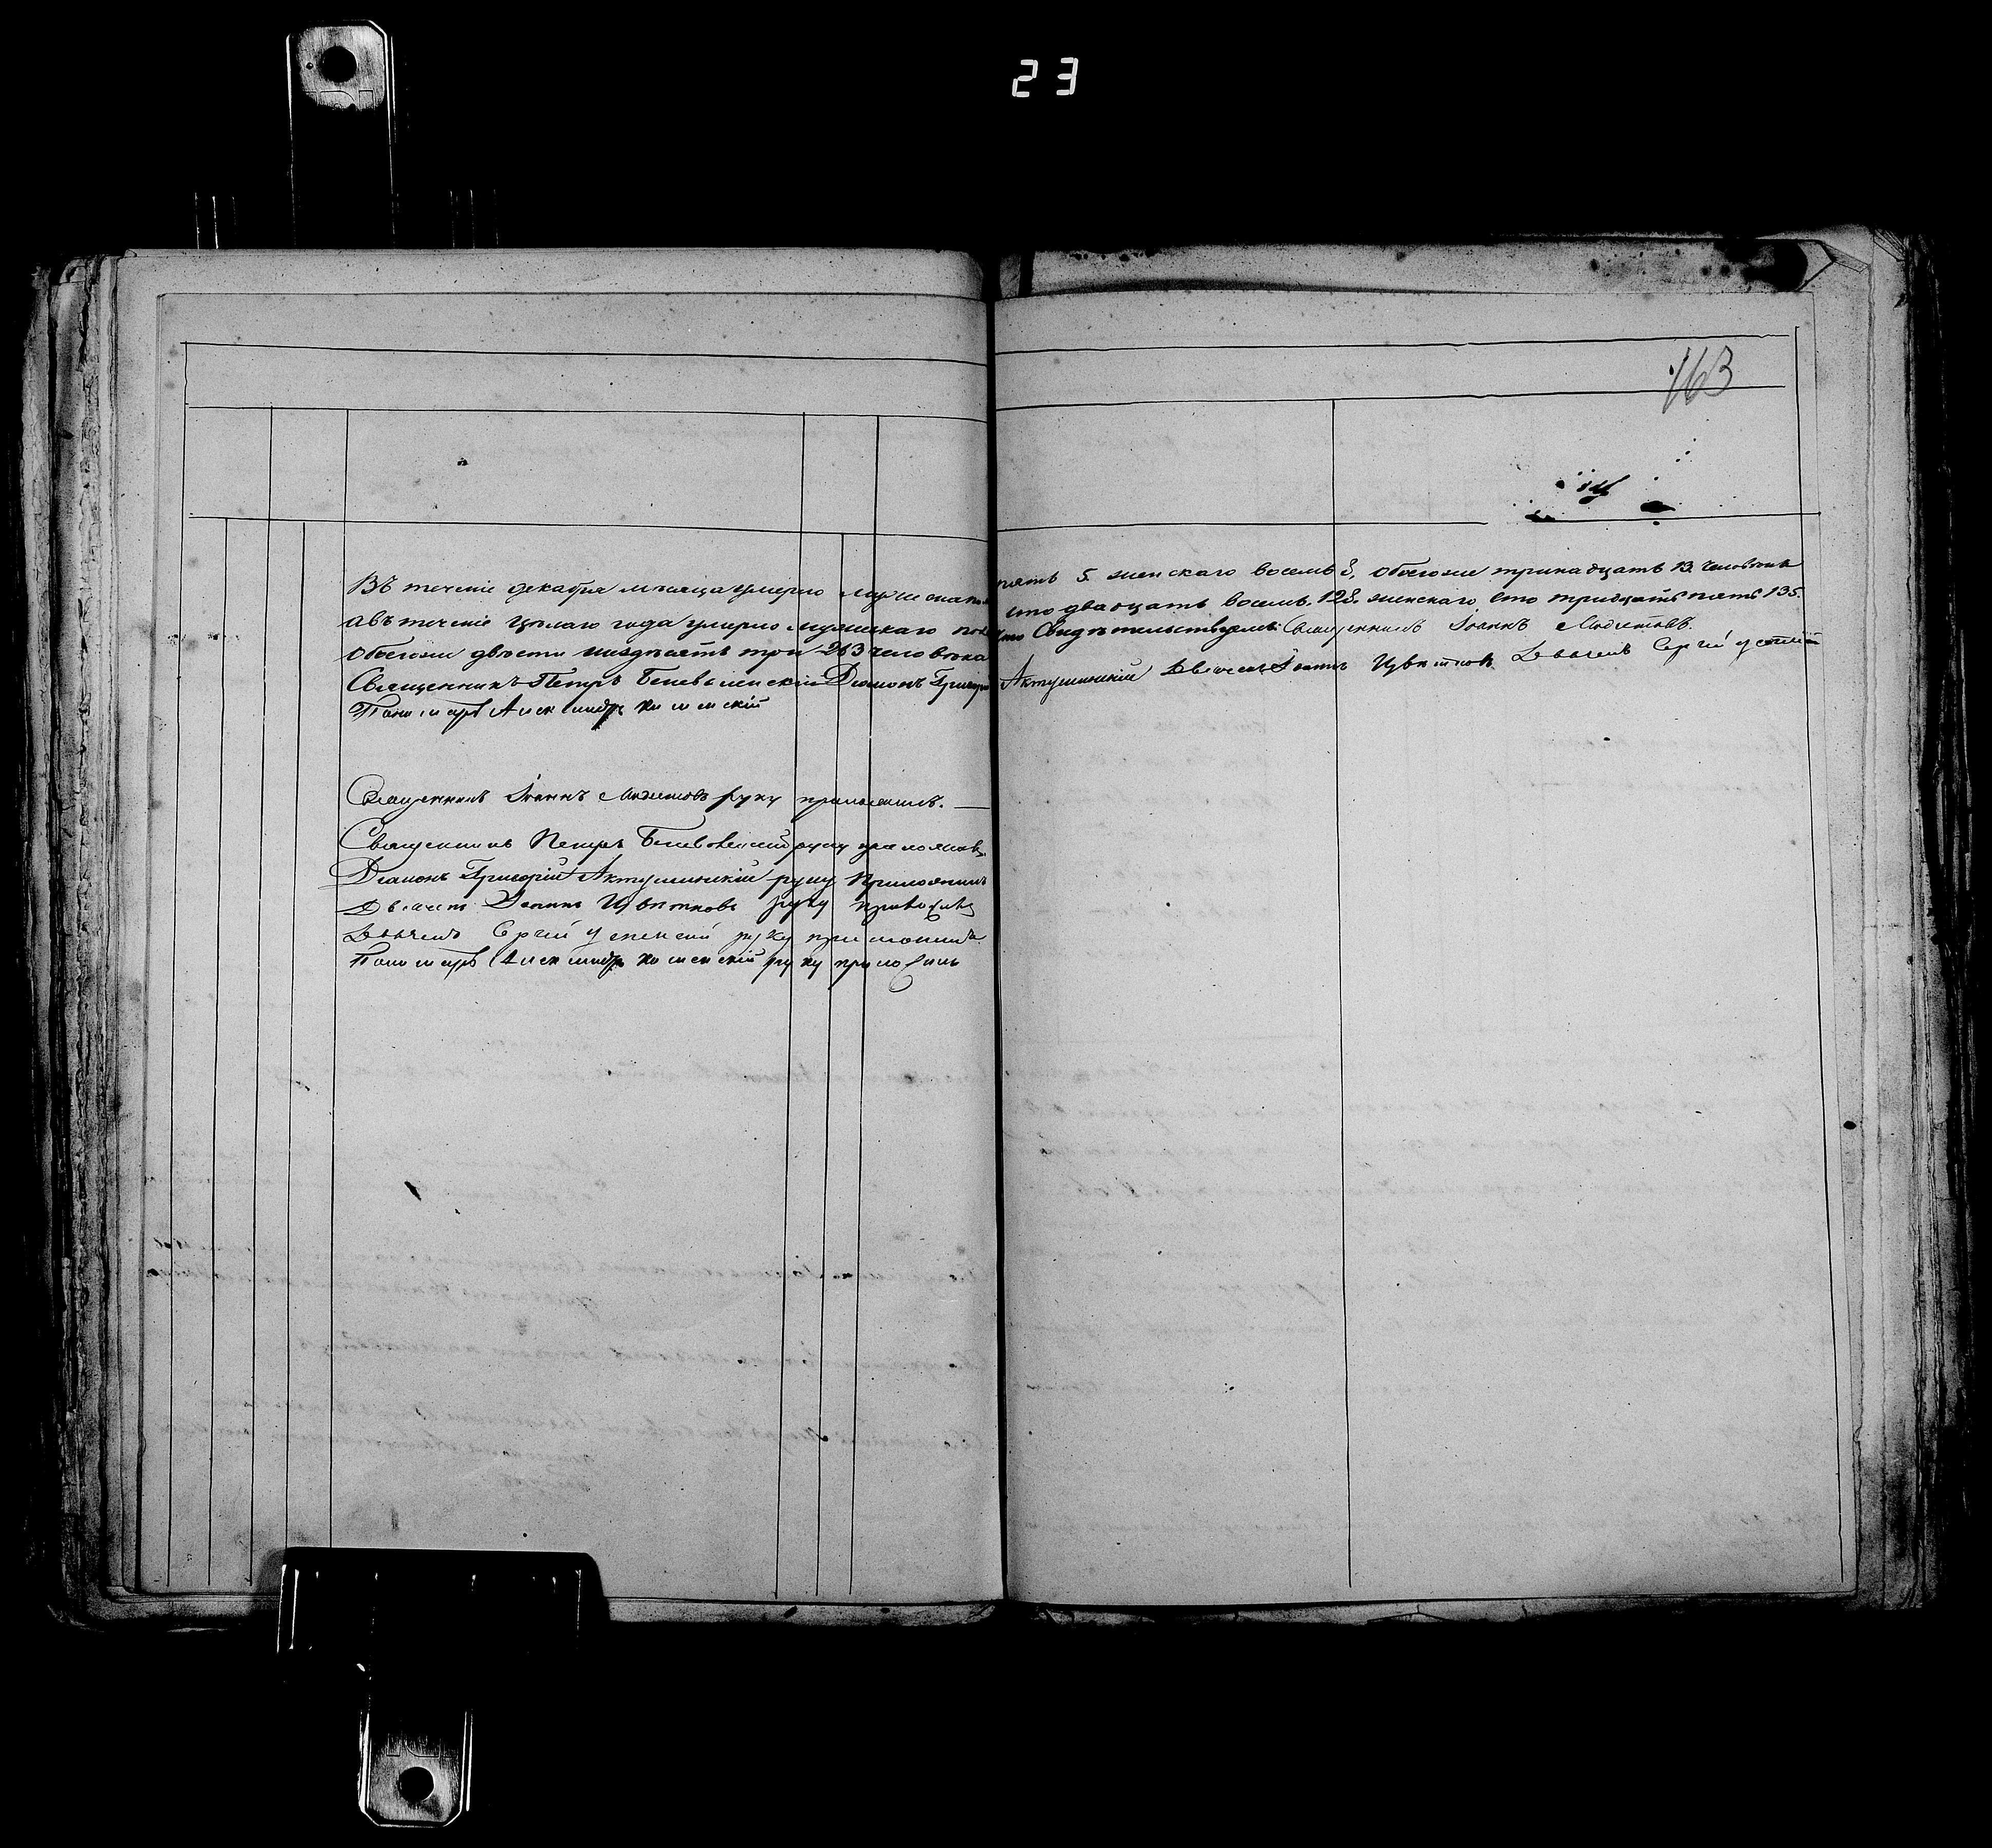 23
163
Въ теченіе декабря мѣсяца умерло мужескаго пола пять 5. женскаго восемь 8, обоегоже тринадцать 13. человѣкъ
а въ теченіе цѣлаго года умерло мужескаго пола сто двадцать восемь. 128. женскаго сто тридцать пять 135.
обоегоже двѣсти шездѣсятъ три 263 человѣка Свидѣтельствуемъ: Священникъ Іоаннъ
Священникъ Петръ Діаконъ Григорій Актушинскій Дьячекъ Іоаннъ Цвѣтковъ Дьячекъ Сергій Успенскій
Пономарь Александръ
Священникъ Іоаннъ руку приложилъ.
Священникъ Петръ руку приложилъ.
Діаконъ Григорій Актушинскій руку приложилъ
Дьячекъ Іоаннъ Цвѣтковъ руку приложилъ
Дьячекъ Сергій Успенскій руку приложилъ
Пономарь Александръ руку приложилъ